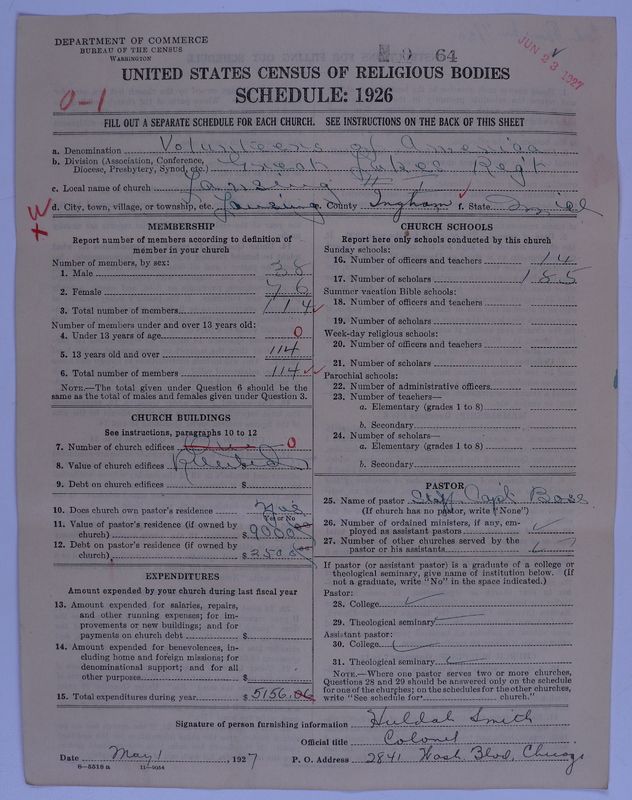 DEPARTMENT OF COMMERCE
BUREAU OF THE CENSUS
WASHINGTON
64
JUN 23 1927
UNITED STATES CENSUS OF RELIGIOUS BODIES
0-1
SCHEDULE: 1926
FILL OUT A SEPARATE SCHEDULE FOR EACH CHURCH. SEE INSTRUCTIONS ON THE BACK OF THIS SHEET
a. Denomination Volunteers of America
b. Division (Association, Conference, Diocese, Presbytery, Synod, etc.) Great Lakes Reg't
c. Local name of church Lansing
d. City, town, village, or township, etc. Lansing County Ingham f. State Mich
MEMBERSHIP
Report number of members according to definition of
member in your church
Number of members, by sex:
1. Male 38
2. Female 76
3. Total number of members 114
Number of members under and over 13 years old:
4. Under 13 years of age 0
5. 13 years old and over 114
6. Total number of members 114
NOTE.—The total given under Question 6 should be the
same as the total of males and females given under Question 3.
CHURCH BUILDINGS
See instructions, paragraphs 10 to 12
7. Number of church edifices 0
8. Value of church edifices
9. Debt on church edifices $
10. Does church own pastor's residence
Yes or No
11. Value of pastor's residence (if owned by
church) $ 9000
12. Debt on pastor's residence (if owned by
church) $ 3500
EXPENDITURES
Amount expended by your church during last fiscal year
13. Amount expended for salaries, repairs,
and other running expenses; for im-
provements or new buildings; and for
payments on church debt $
14. Amount expended for benevolences, in-
cluding home and foreign missions; for
denominational support; and for all
other purposes $
15. Total expenditures during year $ 5156.06
CHURCH SCHOOLS
Report here only schools conducted by this church
Sunday schools:
16. Number of officers and teachers 14
17. Number of scholars 185
Summer vacation Bible schools:
18. Number of officers and teachers
19. Number of scholars
Week-day religious schools:
20. Number of officers and teachers
21. Number of scholars
Parochial schools:
22. Number of administrative officers
23. Number of teachers—
a. Elementary (grades 1 to 8)
b. Secondary
24. Number of scholars—
a. Elementary (grades 1 to 8)
b. Secondary
PASTOR
25. Name of pastor Staff Capt Boss
(If church has no pastor, write "None")
26. Number of ordained ministers, if any, em-
ployed as assistant pastors
27. Number of other churches served by the
pastor or his assistants
If pastor (or assistant pastor) is a graduate of a college or
theological seminary, give name of institution below. (If
not a graduate, write "No" in the space indicated.)
Pastor:
28. College
29. Theological seminary
Assistant pastor:
30. College
31. Theological seminary
NOTE.—Where one pastor serves two or more churches,
Questions 28 and 29 should be answered only on the schedule
for one of the churches; on the schedules for the other churches,
write "See schedule for church."
Signature of person furnishing information Huldah Smith
Official title Colonel
Date May 1, 1927 P. O. Address 2841 Wash Blvd, Chicago
8—5518 a 11—9054